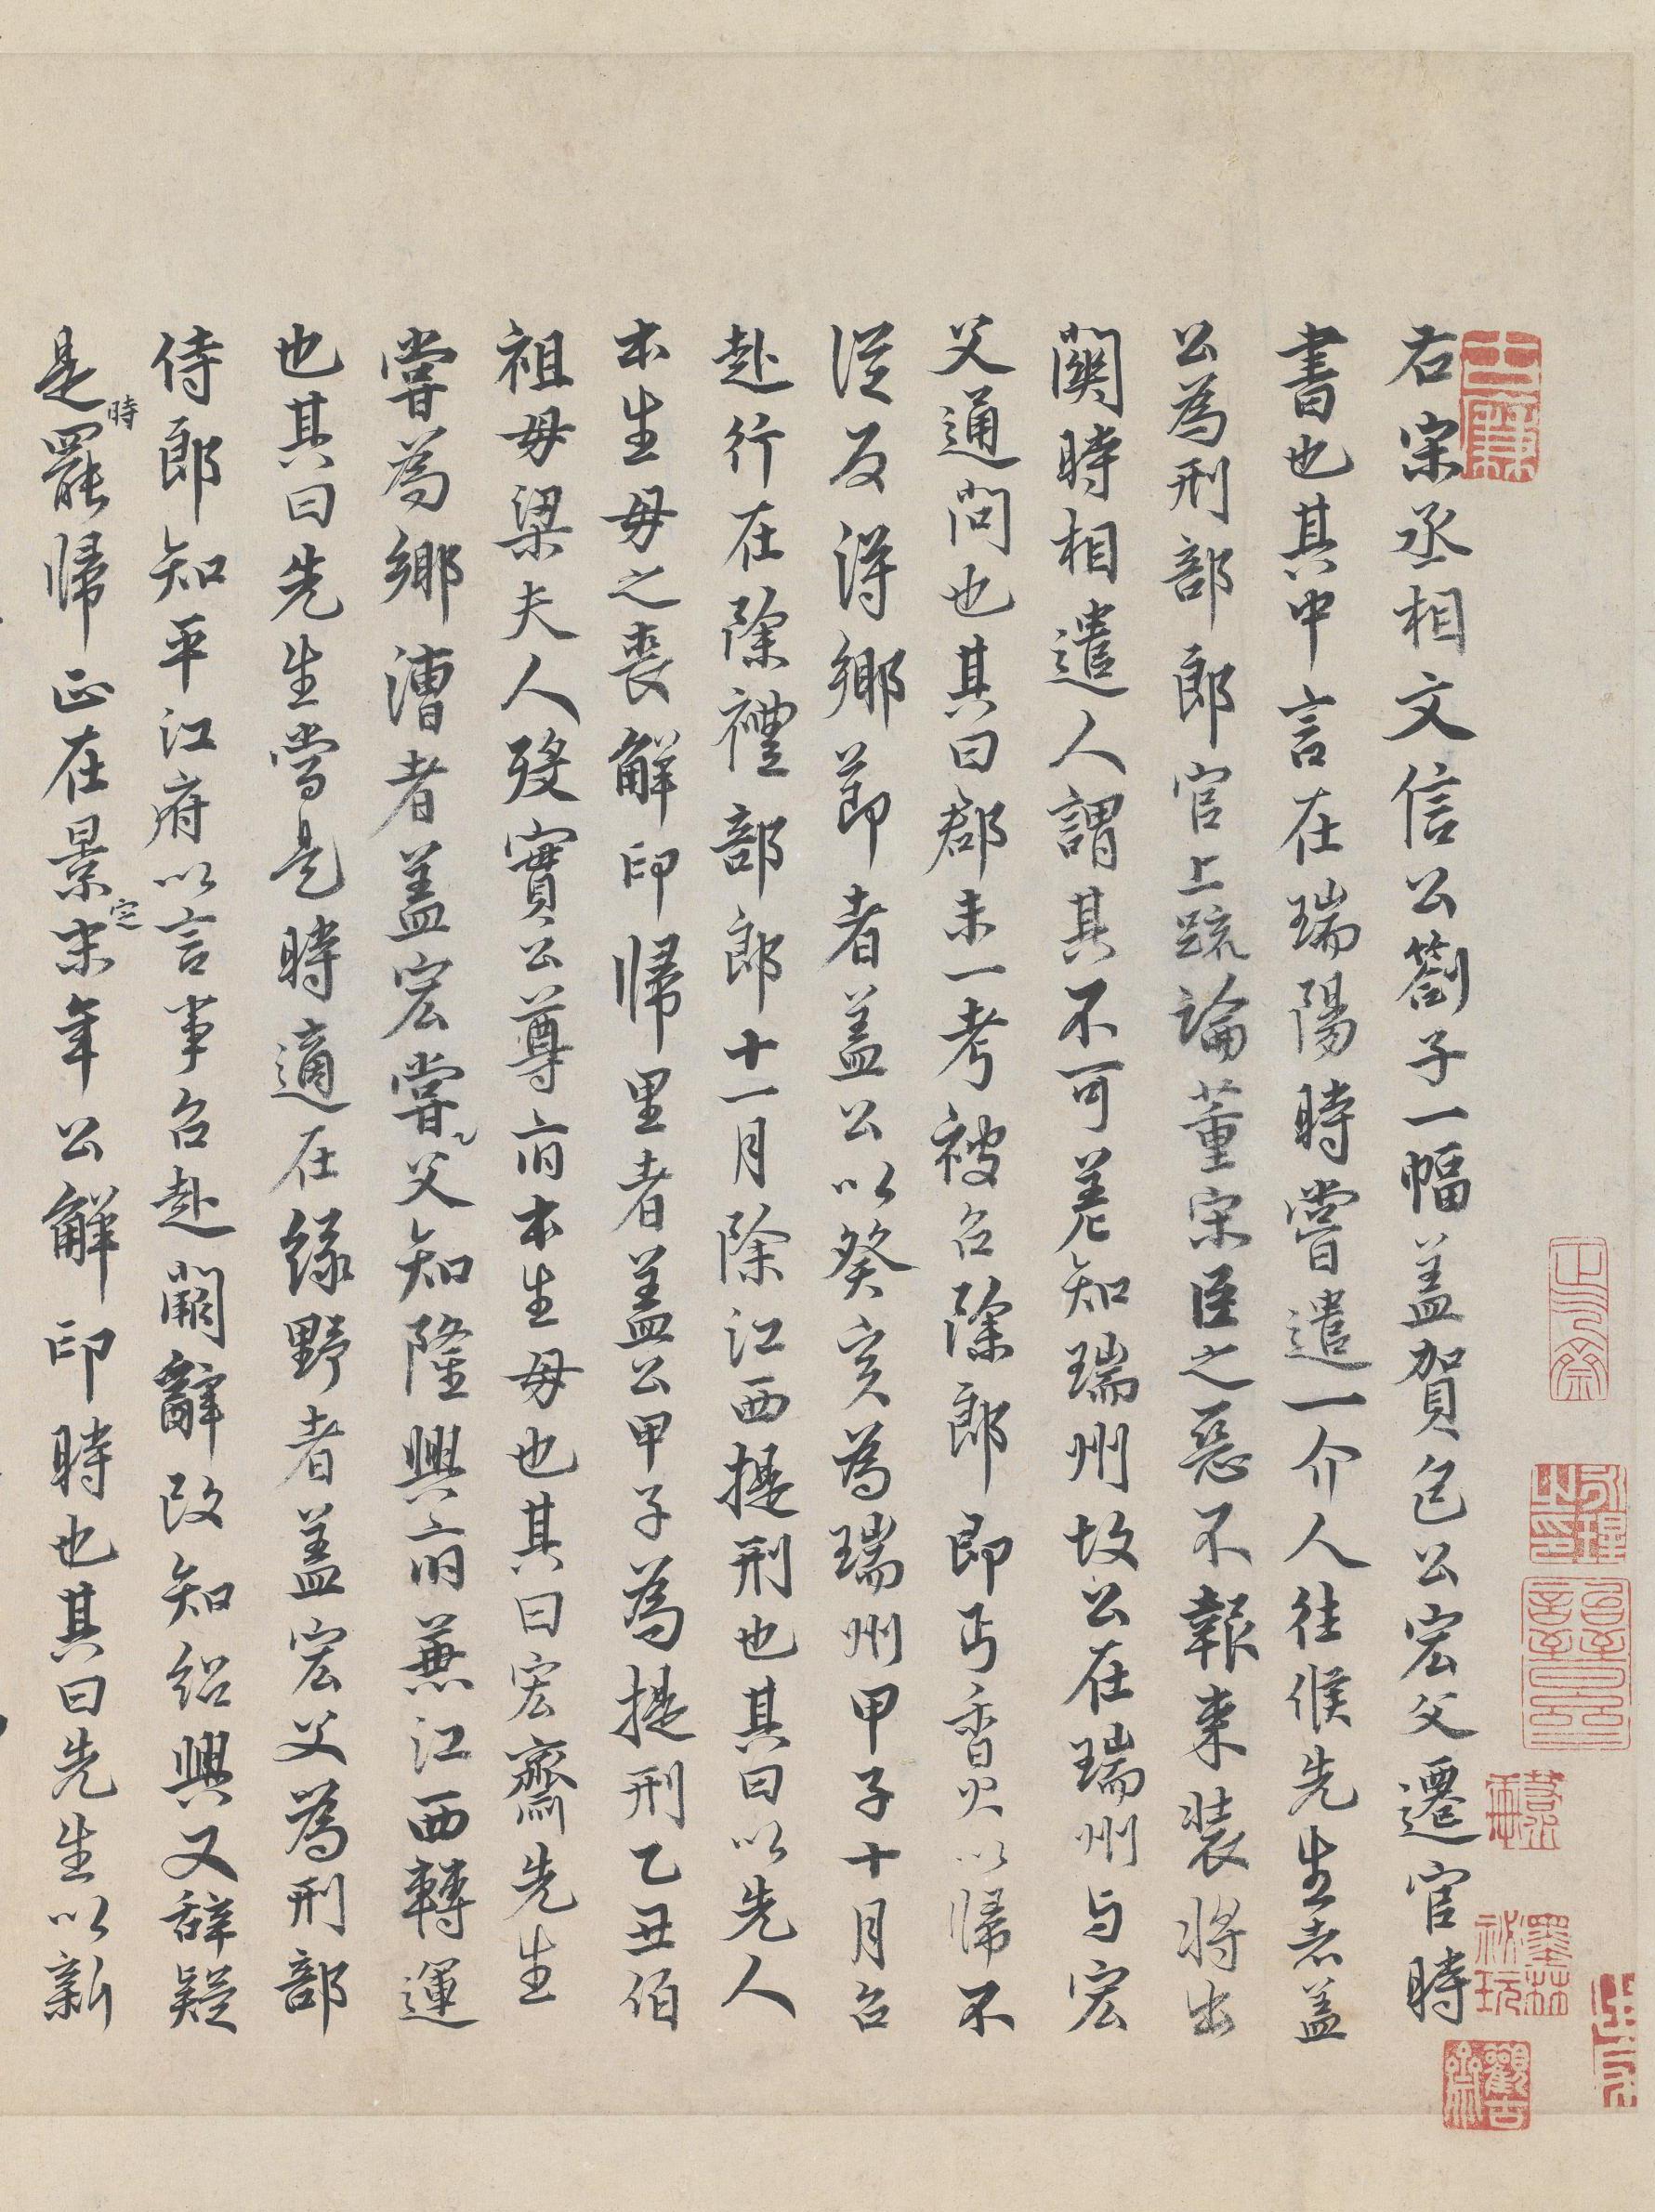 右宋丞相文信公劄子一幅盖賀包公宏父遷官時
書也其中言在瑞陽時嘗遣一介人往候先生者盖
公為刑部郎官上疏論董宋臣之惡不報束裝將出
關時相遣人謂其不可差知瑞州故公在瑞州与宏
父通問也其曰郡未一考被召除郎即丐香火以歸不
從反得鄉莭者盖公以癸亥為瑞州甲子十月召
赴行在除禮部郎十一月除江西提刑也其曰以先人
本生母之喪解印歸里者盖公甲子為提刑乙丑伯
祖母梁夫人殁實公尊府本生母也其曰宏齋先生
嘗為鄉漕者盖宏嘗父知隆興府兼江西轉運
也其曰先生當是時適在緑野者盖宏父為刑部
侍郎知平江府以言事召赴闕辭改知紹興又辞疑
是時罷歸正在景定末年公解印時也其曰先生以新
觀古